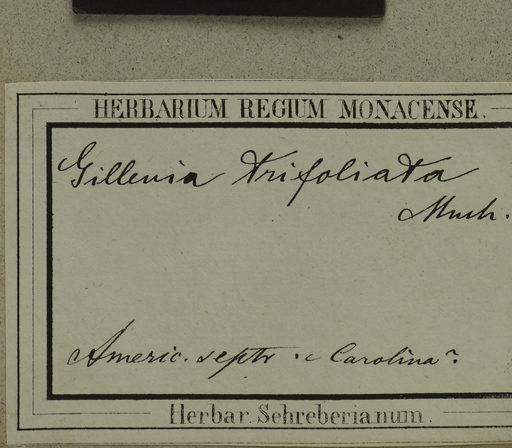 HERBARIUM REGIUM MONACENSE.
Gillenia trifoliata
Mnch.
Americ. septr. c Carolina?.
Herbar. Schreberianum.